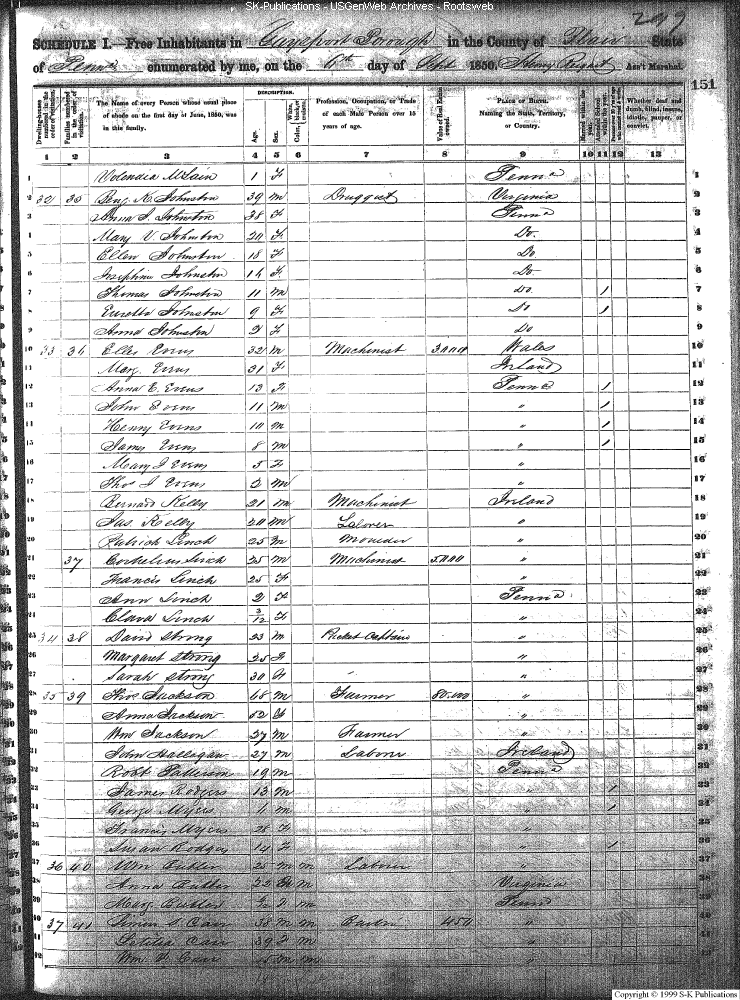 SK-Publications - USGenWeb Archives - Rootsweb
SCHEDULE I.—Free Inhabitants in Gaysport Borough in the County of Blair State
of Penna enumerated by me, on the 6th day of Sept 1850. Ass't Marshal.
151
Dwelling-houses numbered in the order of visitation.
Families numbered in the order of visitation.
The Name of every Person whose usual place of abode on the first day of June, 1850, was in this family.
DESCRIPTION.
Age.
Sex.
Color, White, black, or mulatto.
Profession, Occupation, or Trade of each Male Person over 15 years of age.
Value of Real Estate owned.
PLACE OF BIRTH. Naming the State, Territory, or Country.
Married within the year.
Attended School within the year.
Whether deaf and dumb, blind, insane, idiotic, pauper, or convict.
1 2 3 4 5 6 7 8 9 10 11 12 13
1 McLain 1 F Penna 1
2 32 35 Benj. K. Johnston 39 m Druggist Virginia 2
3 Johnston 38 F Penna 3
4 Mary V Johnston 20 F Do. 4
5 Ellen Johnston 18 F Do. 5
6 Josephine Johnston 14 F Do 6
7 Thomas Johnston 11 m Do. 1 7
8 Johnston 9 F Do 1 8
9 Anna Johnston 2 F Do 9
10 33 36 Evens 32 m Machinist 3000 Wales 10
11 Mary Evens 31 F Ireland 11
12 Anna E. Evens 13 F Penna 1 12
13 John Evens 11 m " 1 13
14 Henry Evens 10 m " 1 14
15 James Evens 8 m " 1 15
16 Mary J Evens 5 F " 16
17 Thos J Evens 2 m " 17
18 Bernard Kelly 21 m Machinist Ireland 18
19 Jas. Kelly 20 m Laborer " 19
20 Patrick Linch 25 m Moulder " 20
21 37 Cornelius Linch 25 m Machinist 5000 " 21
22 Francis Linch 25 F " 22
23 Ann Linch 2 F Penna 23
24 Clara Linch 3/12 F " 24
25 34 38 David Strong 23 m Packet Captain " 25
26 Margaret Strong 25 F " 26
27 Sarah Strong 30 F " 27
28 35 39 Jackson 68 m Farmer 80.000 " 28
29 Anna Jackson 62 F " 29
30 Wm Jackson 27 m Farmer " 30
31 John Hallagan 27 m Laborer Ireland 31
32 Robt Patterson 19 m Penna 32
33 James Rodgers 13 m " 1 33
34 George Myers m " 1 34
35 Francis Myers 28 F " 35
36 Susan Rodgers 14 F " 1 36
37 36 40 Wm Butler 25 m m Laborer " 37
38 Anna Butler 22 m Virginia 38
39 Mary Butler F m Penna 39
40 37 41 Simon S. Carr 38 m m Barber 450 " 40
41 Letitia Carr 39 F m " 41
42 Wm Carr m m " 42
Copyright © 1999 S-K Publications